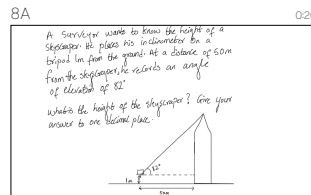 8A
0:20
A surveyor wants to know the height of a
skyscraper. He places his inclinometer on a
tripod 1m from the ground. At a distance of 50m
from the skyscraper, he records an angle
of elevation of 82°
What is the height of the skyscraper? Give your
answer to one decimal place.
82°
1m
50m